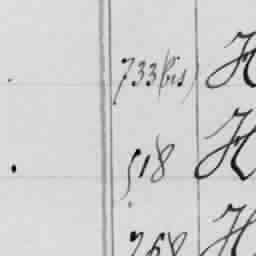 733(bis) H
518 H
768 H